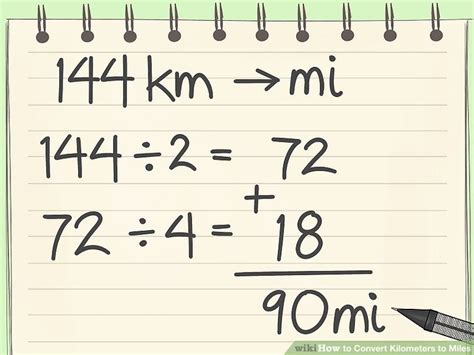 144 km → mi
144 ÷ 2 = 72
+
72 ÷ 4 = 18
90mi
wiki How to Convert Kilometers to Miles